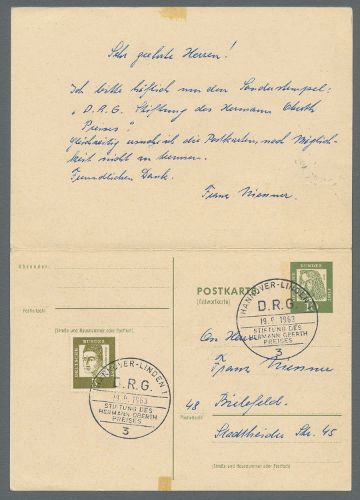 Sehr geehrte Herren!
Ich bitte höflich um den Sonderstempel:
"D.R.G. Stiftung des Hermann Oberth
Preises".
Gleichzeitig ersuche ich die Postkarten, nach Möglich-
keit nicht zu
Freundlichen Dank.
Franz
Absender:
Postleitzahl
(Straße und Hausnummer oder Postfach)
POSTKARTE
(Antwortkarte)
DEUTSCHE BUNDESPOST
HANNOVER-LINDEN 1
D.R.G.
19.9.1963
STIFTUNG DES
HERMANN OBERTH
PREISES
3
An Herrn
Franz
48 Bielefeld.
Postleitzahl
Str. 45
(Straße und Hausnummer oder Postfach)
HANNOVER-LINDEN 1
D.R.G.
19.9.1963
STIFTUNG DES
HERMANN OBERTH
PREISES
3